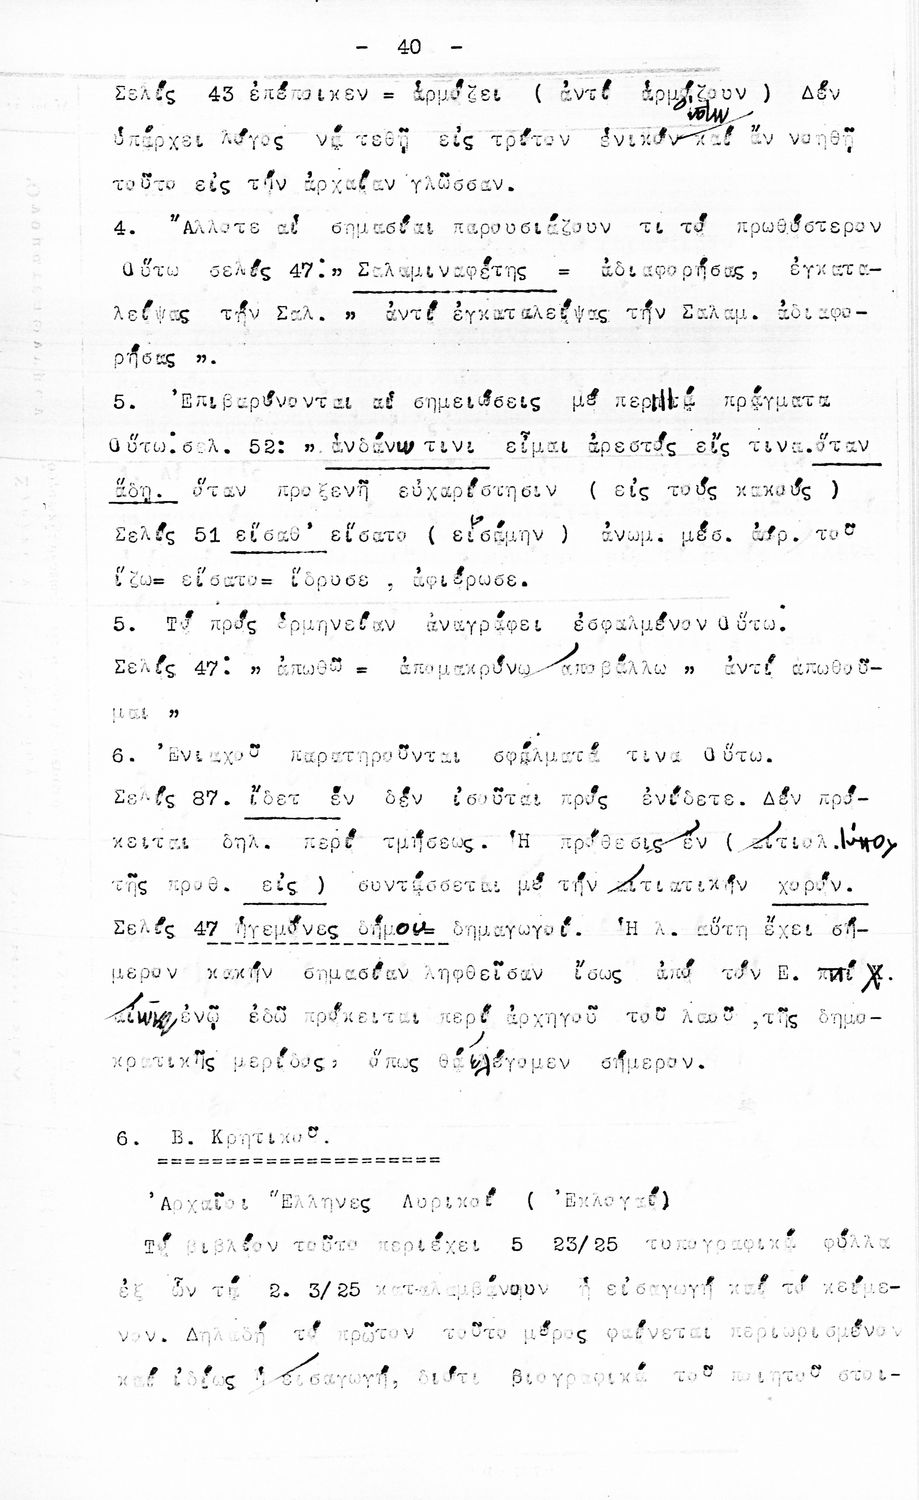 - 40 -
Σελίς 43 ἐπέποικεν = ἁρμόζει ( ἀντί ἁρμόζουν ) Δέν
ὑπάρχει λόγος νά τεθῇ εἰς τρίτον ἑνικόν καί ἄν νοηθῇ
τοῦτο εἰς τήν ἀρχαίαν γλῶσσαν.
4. Ἄλλοτε αἱ σημασίαι παρουσιάζουν τι τό πρωθύστερον
Οὕτω σελίς 47: „ Σαλαμιναφέτης = ἀδιαφορήσας, ἐγκατα-
λείψας τήν Σαλ. „ ἀντί ἐγκαταλείψας τήν Σαλαμ. ἀδιαφο-
ρήσας „.
5. Ἐπιβαρύνονται αἱ σημειώσεις μέ περιττά πράγματα
Οὕτω: σελ. 52: „ ἁνδάνω τινι εἶμαι ἀρεστός εἴς τινα. ὅταν
ἅδῃ. ὅταν προξενῇ εὐχαρίστησιν ( εἰς τούς κακούς )
Σελίς 51 εἵσαθ' εἵσατο ( εἱσάμην ) ἀνωμ. μέσ. ἀόρ. τοῦ
ἵζω= εἵσατο= ἵδρυσε , ἀφιέρωσε.
5. Τό πρός ἑρμηνείαν ἀναγράφει ἐσφαλμένον Οὕτω:
Σελίς 47: „ ἀπωθῶ = ἀπομακρύνω ἀποβάλλω „ ἀντί ἀπωθοῦ-
μαι „
6. Ἐνιαχοῦ παρατηροῦνται σφάλματά τινα Οὕτω.
Σελίς 87. ἴδετ ἐν δέν ἰσοῦται πρός ἐνίδετε. Δέν πρό-
κειται δηλ. περί τμήσεως. Ἡ πρόθεσις ἐν ( αἰτιολ. τύπου
τῆς προθ. εἰς ) συντάσσεται μέ τήν αἰτιατικήν χορόν.
Σελίς 47 ἡγεμόνες δήμου= δημαγωγοί. Ἡ λ. αὕτη ἔχει σή-
μερον κακήν σημασίαν ληφθεῖσαν ἴσως ἀπό τόν Ε. π. Χ.
αἰῶνα, ἐνῷ ἐδῶ πρόκειται περί ἀρχηγοῦ τοῦ λαοῦ ,τῆς δημο-
κρατικῆς μερίδος, ὅπως θά ἐλέγομεν σήμερον.
6. Β. Κρητικοῦ.
Ἀρχαῖοι Ἕλληνες Λυρικοί ( Ἐκλογαί)
Τό βιβλίον τοῦτο περιέχει 5 23/25 τυπογραφικά φύλλα
ἐξ ὧν τά 2. 3/25 καταλαμβάνουν ἡ εἰσαγωγή καί τό κείμε-
νον. Δηλαδή τό πρῶτον τοῦτο μέρος φαίνεται περιωρισμένον
καί ἰδίως ἡ εἰσαγωγή, διότι βιογραφικά τοῦ ποιητοῦ στοι-